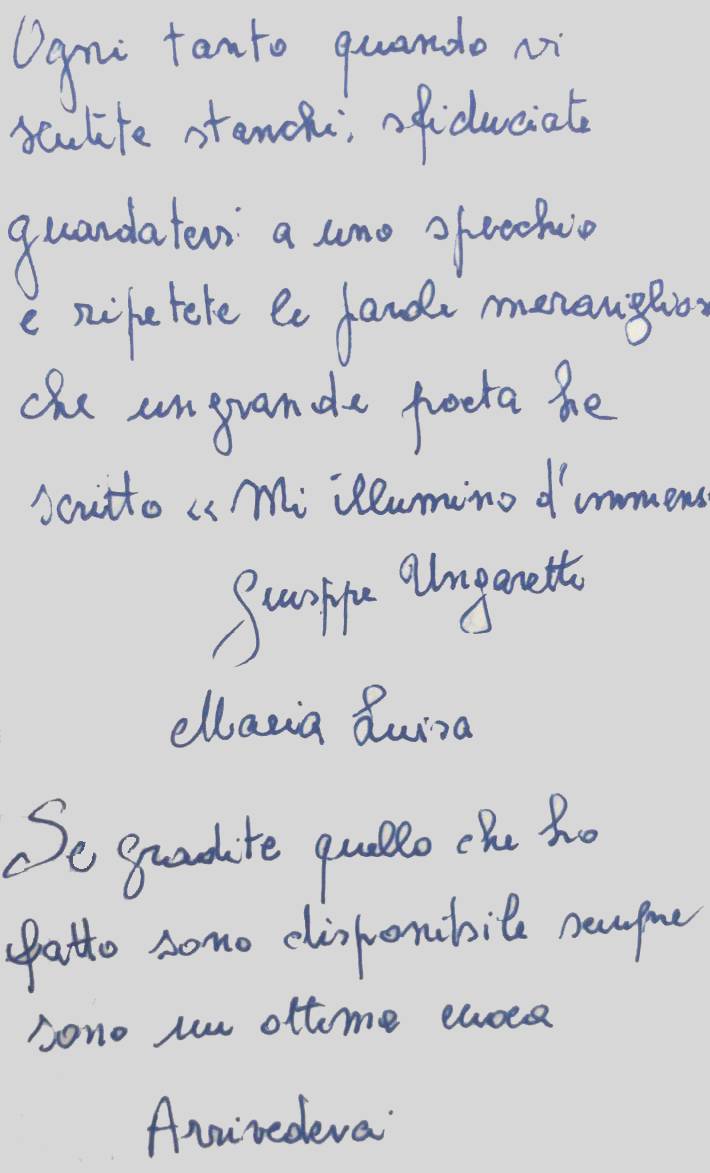 Ogni tanto quando vi
sentite stanchi, sfiduciate
guardatevi a uno specchio
e ripetete le parole meraviglios
che un grande poeta ha
scritto « Mi illumino d'immens
Giuseppe Ungaretti
Maria Luisa
Se gradite quello che ho
fatto sono disponibile sempre
sono un ottima cuoca
Arrivederci